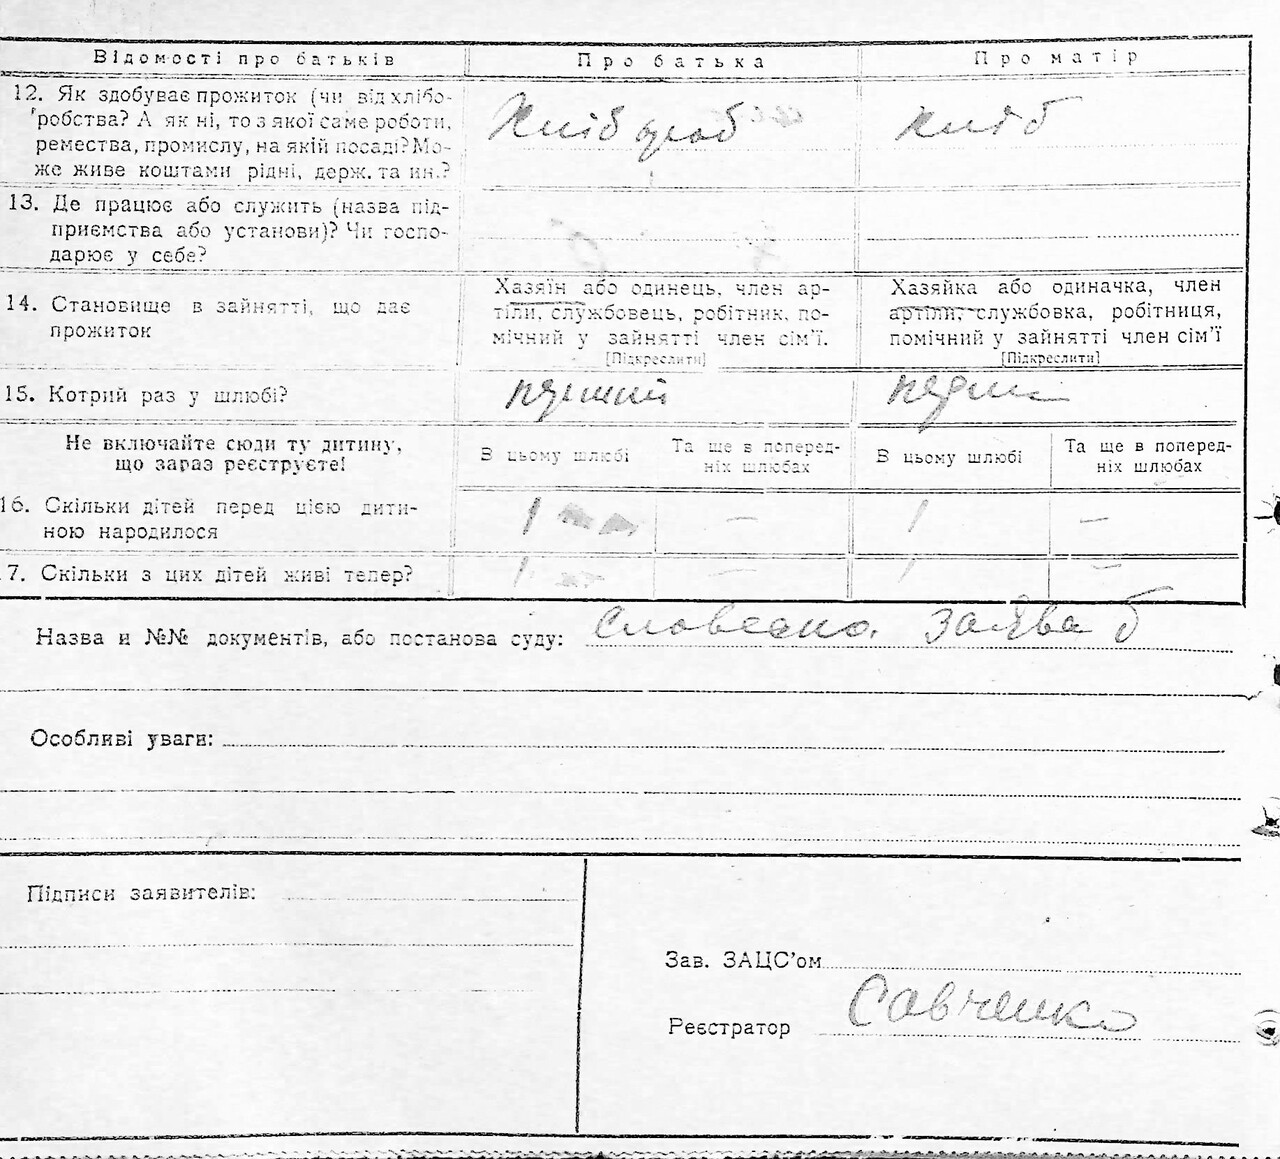 Відомості про батьків
Про батька
Про матір
12. Як здобуває прожиток (чи від хлібо-
робства? А як ні, то з якої саме роботи,
ремества, промислу, на якій посаді? Мо-
же живе коштами рідні, держ. та ин.?
Хліб ороб
хліб
13. Де працює або служить (назва під-
приємства або установи)? Чи госпо-
дарює у себе?
14. Становище в зайнятті, що дає
прожиток
Хазяїн або одинець, член ар-
тіли, службовець, робітник, по-
мічний у зайнятті член сім'ї.
[Підкреслити]
Хазяйка або одиначка, член
артіли, службовка, робітниця,
помічний у зайнятті член сім'ї
[Підкреслити]
15. Котрий раз у шлюбі?
перший
перший
Не включайте сюди ту дитину,
що зараз реєструєте!
В цьому шлюбі
Та ще в поперед-
ніх шлюбах
В цьому шлюбі
Та ще в поперед-
ніх шлюбах
16. Скільки дітей перед цією дити-
ною народилося
1
—
1
—
17. Скільки з цих дітей живі тепер?
1
—
1
—
Назва и №№ документів, або постанова суду: словесно. заява б
Особливі уваги:
Підписи заявителів:
Зав. ЗАЦС'ом
Реєстратор Савченко